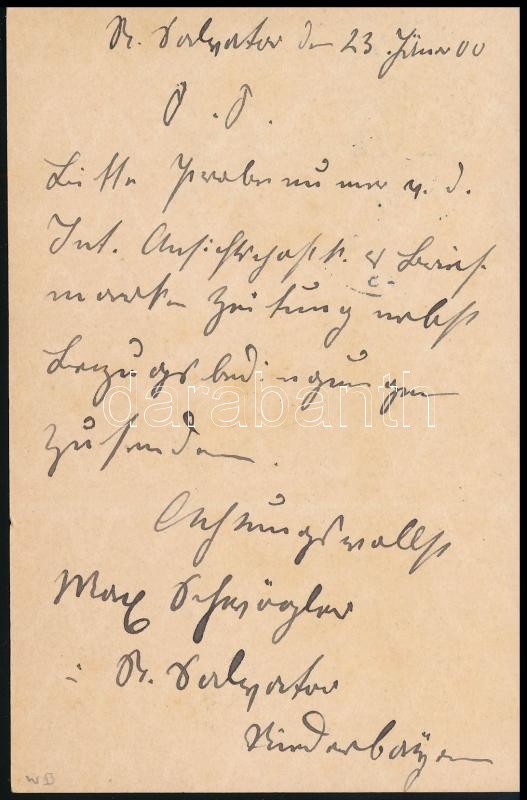 St. Salvator den 23. Jäner 00
P. P.
Bitte Probenummer v. d.
Int. Ansichtspostk. & Brief-
marken Zeitung nebst
Bezugsbedingungen
darabanth
zusenden.
Achtungsvollst
Max Schwögler
in St. Salvator
Niederbayern
WB